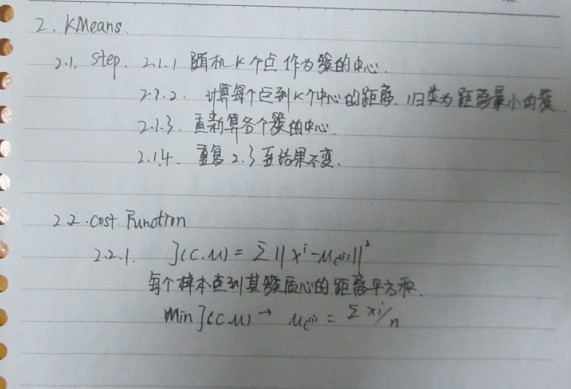 2. KMeans.
2.1. Step. 2.1.1 随机 K个点 作为簇的中心.
2.1.2. 计算每个点到K个中心的距离. 归类为距离最小的簇
2.1.3. 重新算各个簇的中心.
2.1.4. 重复 2.3 至结果不变.
2.2. Cost Function
2.2.1. J(C.M) = Σ || x^i - μ_c(i) ||²
每个样本点到其簇质心的距离平方和.
Min J(C.M) → μ_c(i) = Σ xi/n